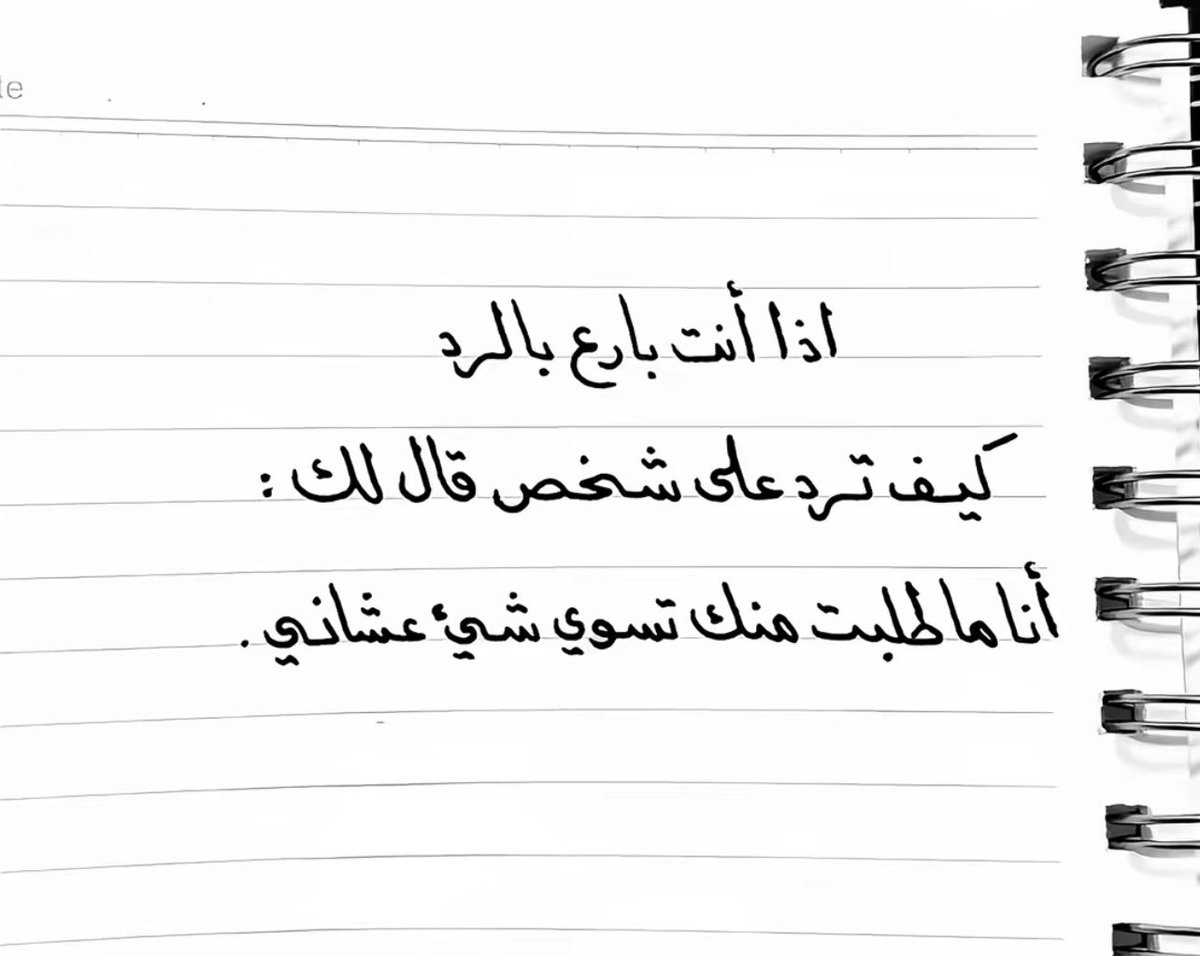 اذا أنت بارع بالرد
كيف ترد على شخص قال لك :
أنا ما طلبت منك تسوي شيئ عشاني .